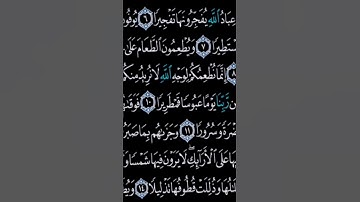 عِبَادُ ٱللَّهِ يُفَجِّرُونَهَا تَفْجِيرًا ٦ يُوفُون
سْتَطِيرًا ٧ وَيُطْعِمُونَ ٱلطَّعَامَ عَلَىٰ
٨ إِنَّمَا نُطْعِمُكُمْ لِوَجْهِ ٱللَّهِ لَا نُرِيدُ مِنكُ
ن رَّبِّنَا يَوْمًا عَبُوسًا قَمْطَرِيرًا ١٠ فَوَقَىٰهُ
ضْرَةً وَسُرُورًا ١١ وَجَزَىٰهُم بِمَا صَبَرُ
هَا عَلَى ٱلْأَرَآئِكِ ۖ لَا يَرَوْنَ فِيهَا شَمْسًا وَ
لَٰلُهَا وَذُلِّلَتْ قُطُوفُهَا تَذْلِيلًا ١٤ وَيُطَ